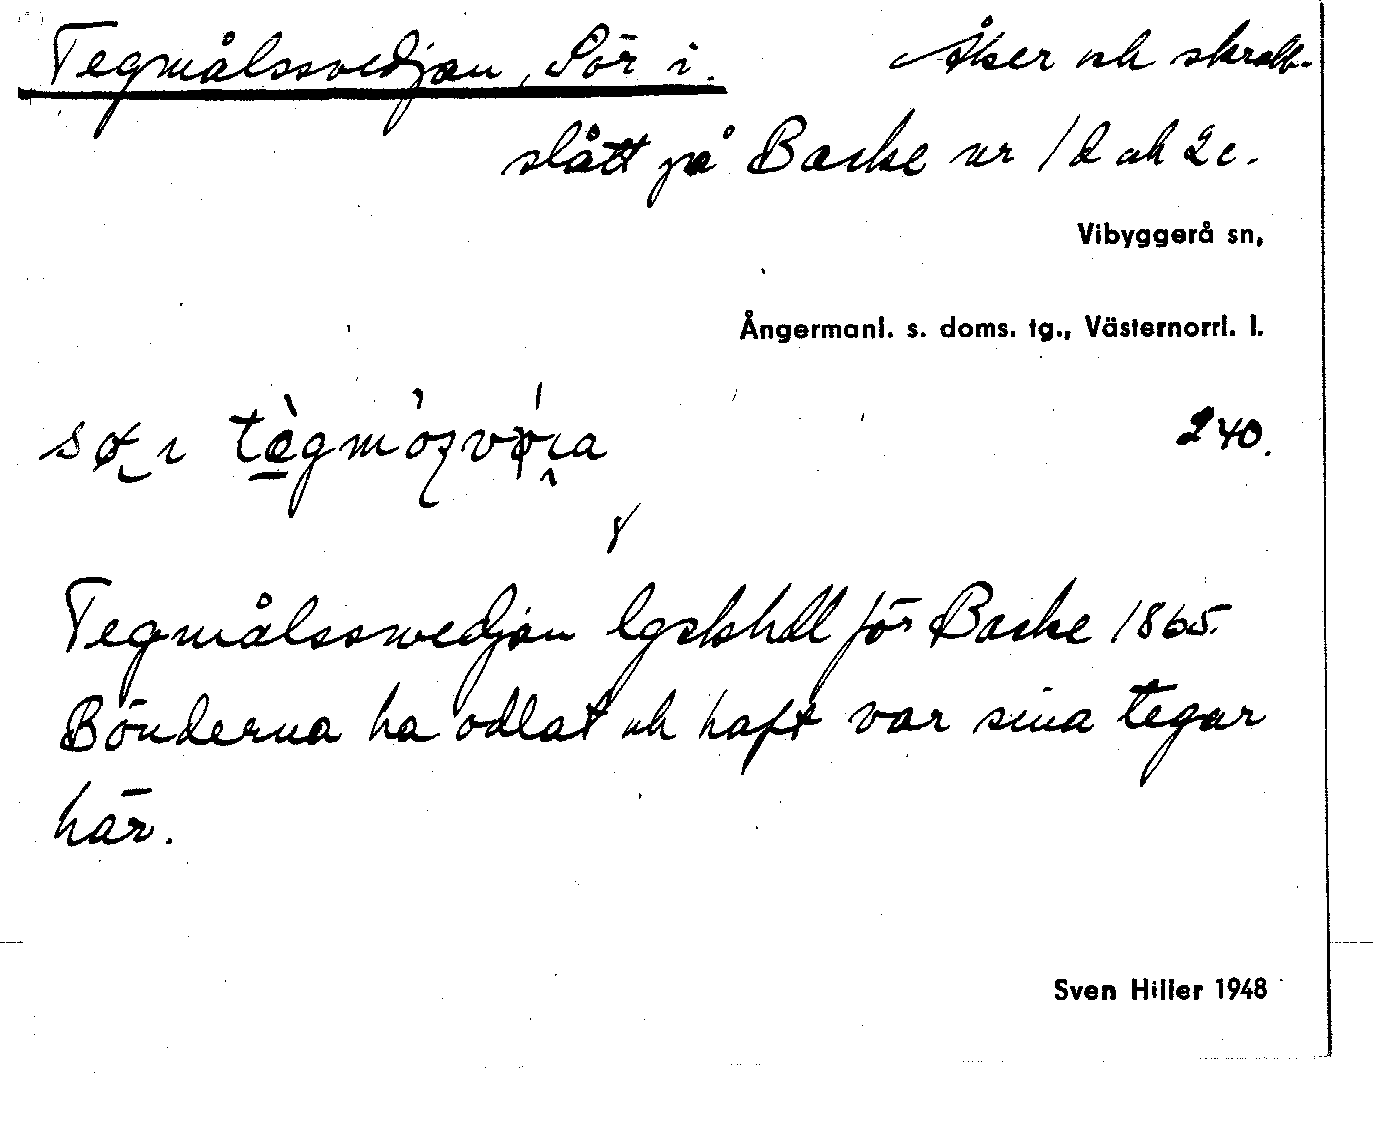 Tegmålssvedjan, Sör i. Åker och skrall-
slått på Backe nr 1d och 2c.
Vibyggerå sn,
Ångermanl. s. doms. tg., Västernorrl. l.
240.
Tegmålsswedjan lgskhdl för Backe 1865.
Bönderna ha odlat och haft var sina tegar
här.
Sven Hiller 1948